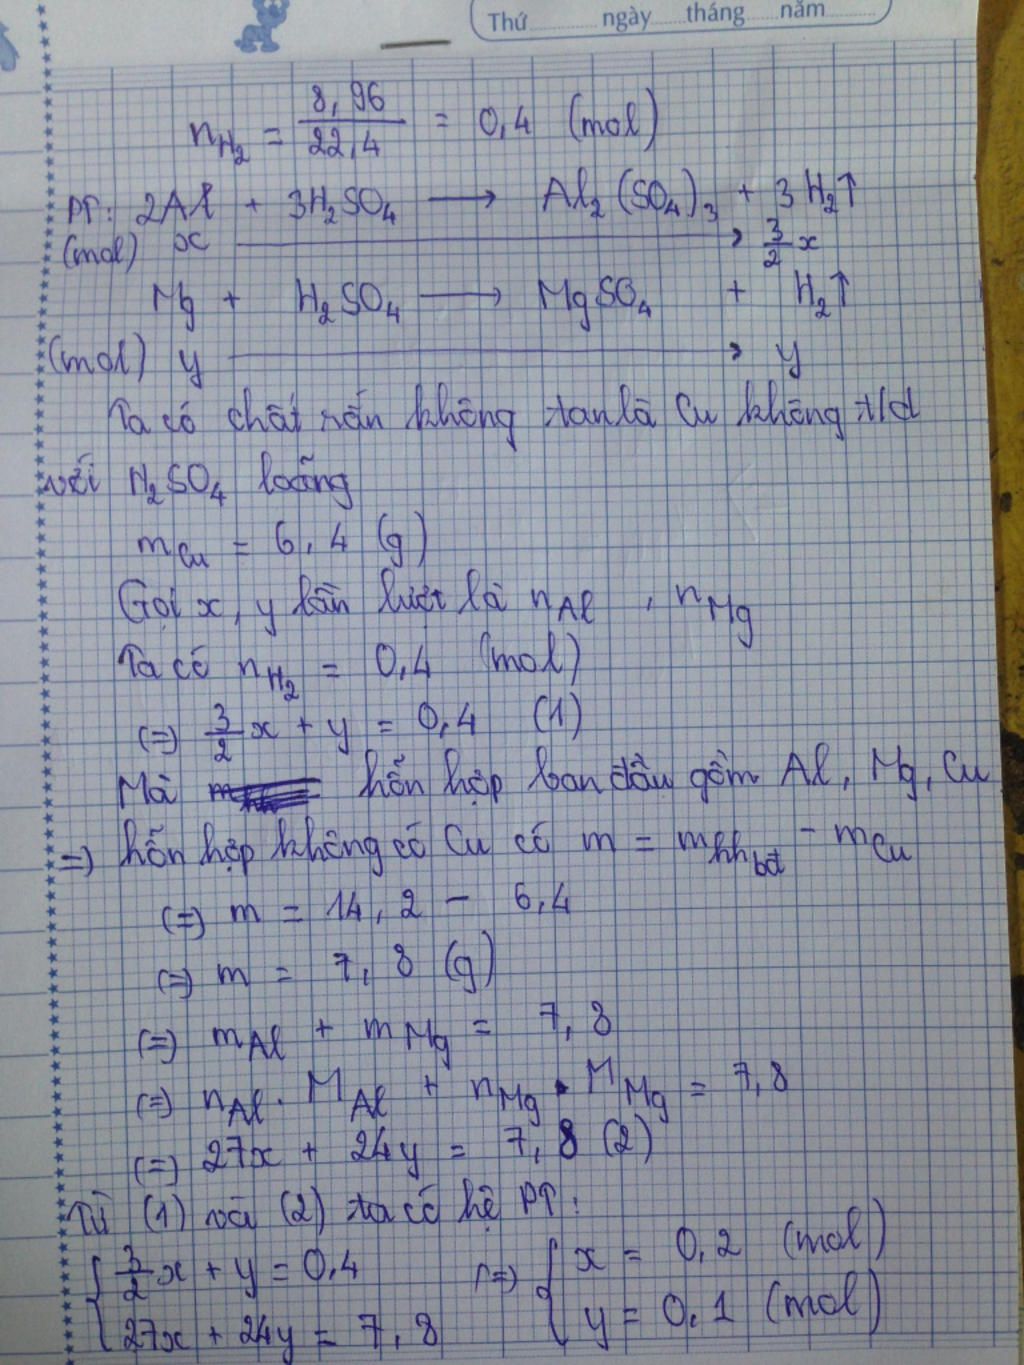 Thứ ngày tháng năm
n_{H_2} = \frac{8,96}{22,4} = 0,4 (mol)
PT: 2Al + 3H_2SO_4 → Al_2(SO_4)_3 + 3H_2↑
(mol) x → \frac{3}{2}x
Mg + H_2SO_4 → MgSO_4 + H_2↑
(mol) y → y
Ta có chất rắn không tan là Cu không t/d
với H_2SO_4 loãng
m_{Cu} = 6,4 (g)
Gọi x, y lần lượt là n_{Al}, n_{Mg}
Ta có n_{H_2} = 0,4 (mol)
(=) \frac{3}{2}x + y = 0,4 (1)
Mà hỗn hợp ban đầu gồm Al, Mg, Cu
=) hỗn hợp không có Cu có m = m_{hhbđ} - m_{Cu}
(=) m = 14,2 - 6,4
(=) m = 7,8 (g)
(=) m_{Al} + m_{Mg} = 7,8
(=) n_{Al} . M_{Al} + n_{Mg} . M_{Mg} = 7,8
(=) 27x + 24y = 7,8 (2)
Từ (1) và (2) ta có hệ PT:
{ \frac{3}{2}x + y = 0,4 (=) { x = 0,2 (mol)
27x + 24y = 7,8 y = 0,1 (mol)